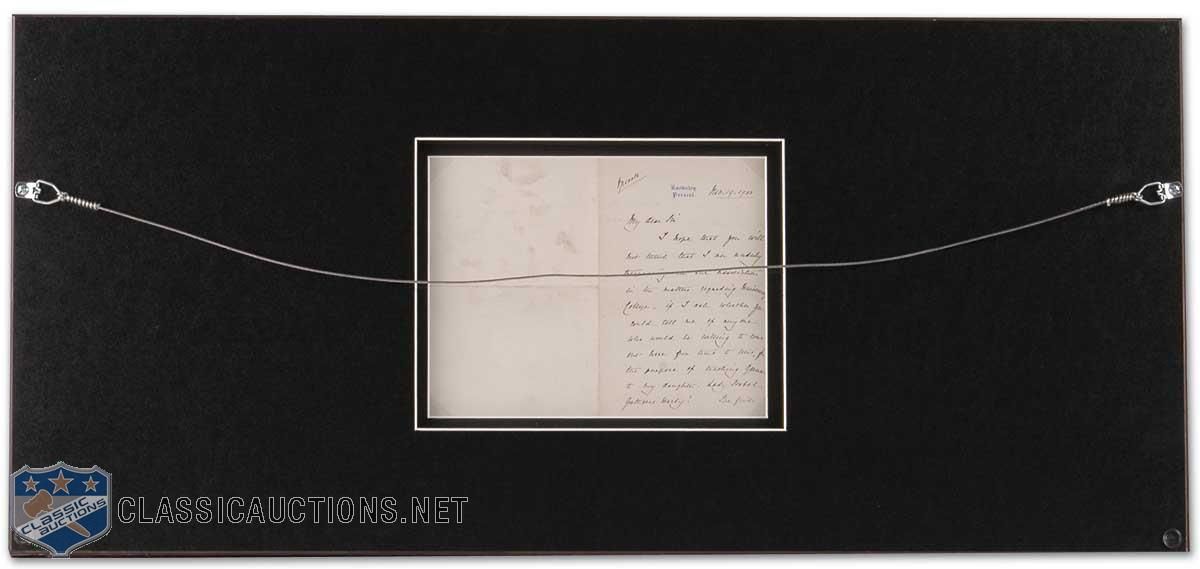 Private
Knowsley,
Prescot.
Nov. 19. 1900
My dear Sir
I hope that you will
not think that I am unduly
trespassing on our association
in the matter regarding University
College - if I ask whether you
could tell me of anyone
who would be willing to come
out here from time to time, for
the purpose of teaching German
to my daughter Lady Isobel
Gathorne Hardy?
CLASSIC
AUCTIONS
CLASSICAUCTIONS.NET